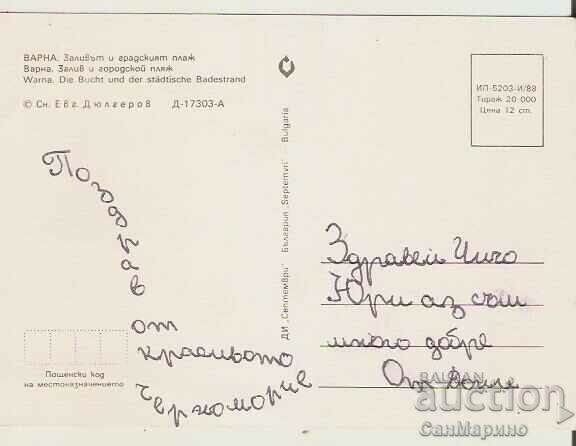 ВАРНА. Заливът и градският плаж
Варна. Залив и городской пляж
Warna. Die Bucht und der städtische Badestrand
© Сн. Евг. Дюлгеров Д-17303-А
ДИ „Септември" България „Septemvri" - Bulgaria
ИП-5203-И/88
Тираж 20 000
Цена 12 ст.
Поздрав
от
красивото
Черноморие
Здравей Чичо
Юри аз съм
много добре
От
Пощенски код
на местоназначението
BALKAN
auction
СанМарино